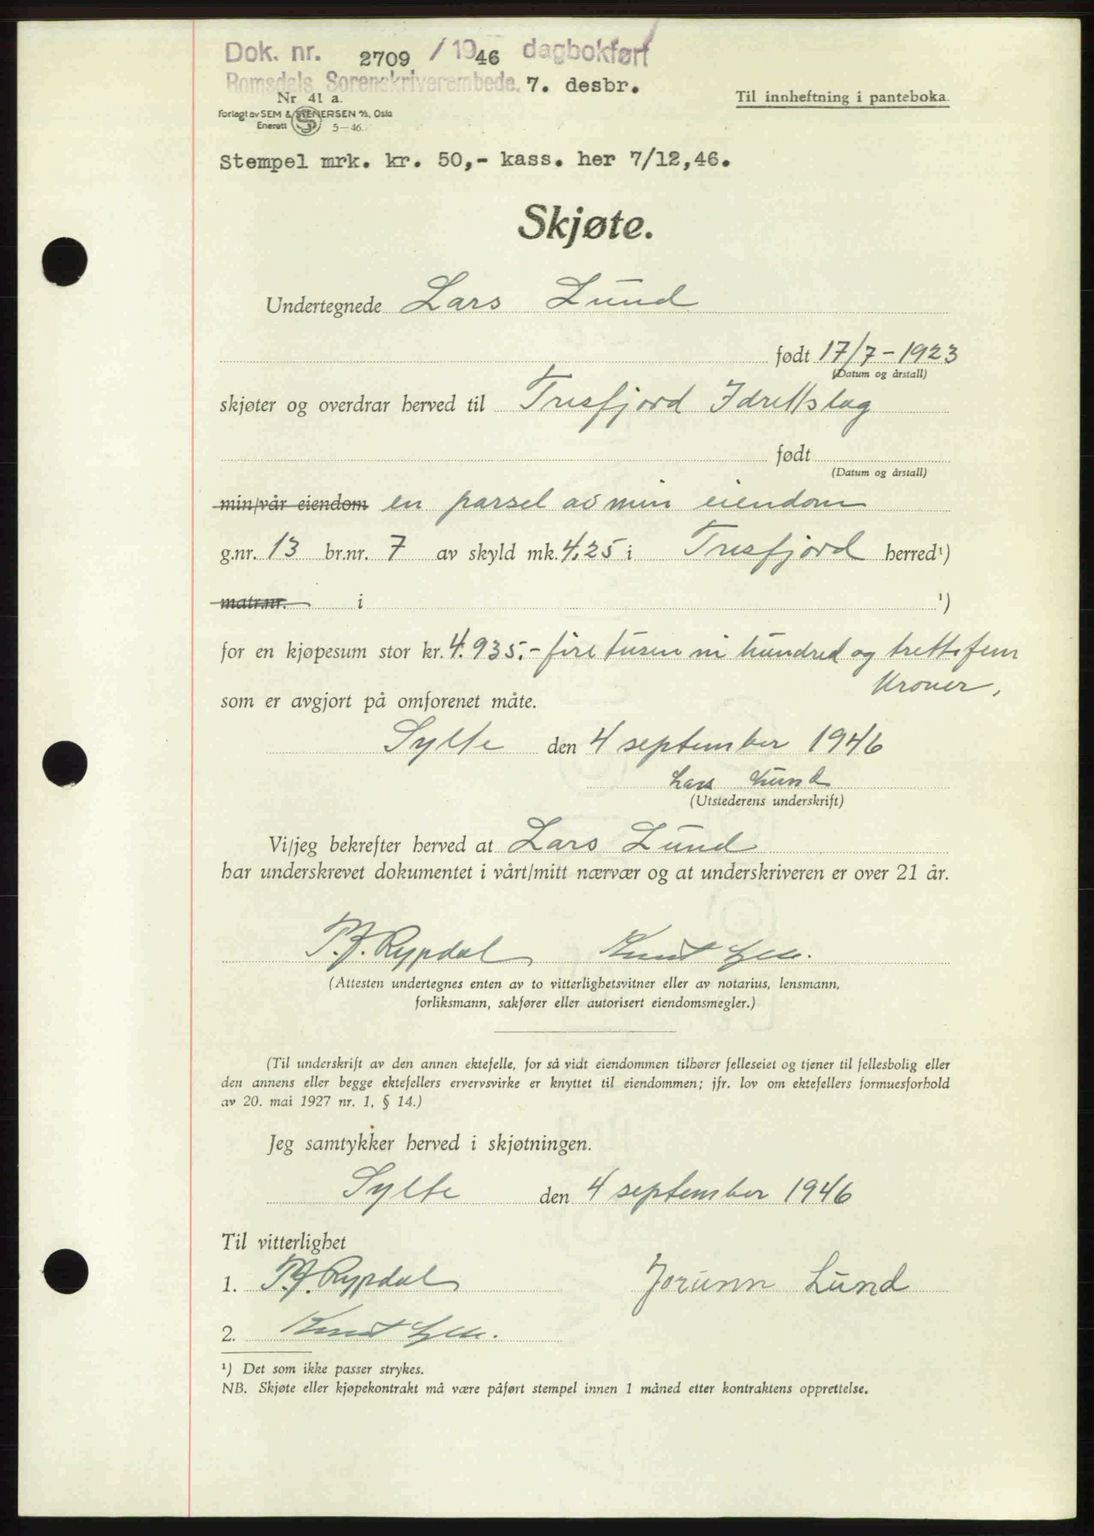 Dok. nr. 2709 / 1946 dagbokført
Romsdals Sorenskriverembede. 7. desbr.
Nr 41 a.
Til innheftning i panteboka.
Forlagt av SEM & STENERSEN A/S, Oslo
Enerett 5—46.
Stempel mrk. kr. 50,- kass. her 7/12,46.
Skjøte.
Undertegnede Lars Lund
født 17/7-1923
(Datum og årstall)
skjøter og overdrar herved til Tresfjord Idrettslag
født
(Datum og årstall)
min/vår eiendom en parsel av min eiendom
g.nr. 13 br.nr. 7 av skyld mk. 4,25 i Tresfjord herred¹)
matr.nr. i ¹)
for en kjøpesum stor kr. 4.935.- fire tusen ni hundred og trettifem
Kroner,
som er avgjort på omforenet måte.
Sylte den 4 september 1946
Lars Lund
(Utstederens underskrift)
Vi/jeg bekrefter herved at Lars Lund
har underskrevet dokumentet i vårt/mitt nærvær og at underskriveren er over 21 år.
Rypdal Knut
(Attesten undertegnes enten av to vitterlighetsvitner eller av notarius, lensmann,
forliksmann, sakfører eller autorisert eiendomsmegler.)
(Til underskrift av den annen ektefelle, for så vidt eiendommen tilhører felleseiet og tjener til fellesbolig eller
den annens eller begge ektefellers ervervsvirke er knyttet til eiendommen; jfr. lov om ektefellers formuesforhold
av 20. mai 1927 nr. 1, § 14.)
Jeg samtykker herved i skjøtningen.
Sylte den 4 september 1946
Til vitterlighet
1. Rypdal Jorunn Lund
2. Knut
¹) Det som ikke passer strykes.
NB. Skjøte eller kjøpekontrakt må være påført stempel innen 1 måned etter kontraktens opprettelse.